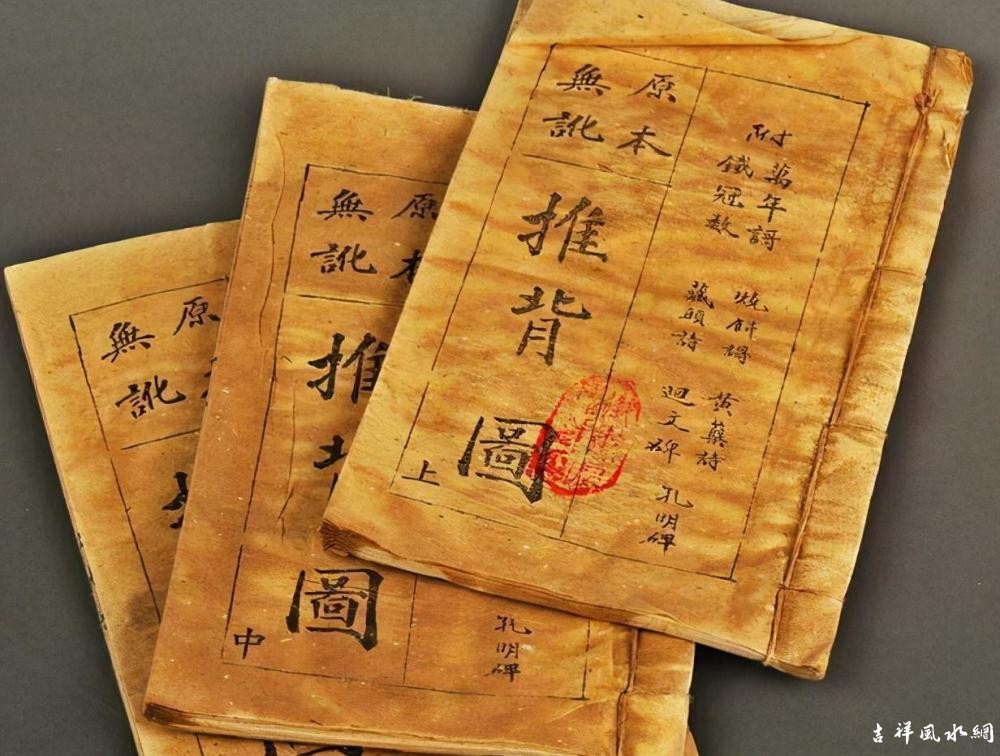 附
萬年謌
鐵冠数
燒餅謌
藏頭詩
黃蘗詩
迴文碑
孔明碑
原本
無訛
推背圖
上
孔明碑
原本
無訛
推背圖
中
原
無訛
吉祥風水網